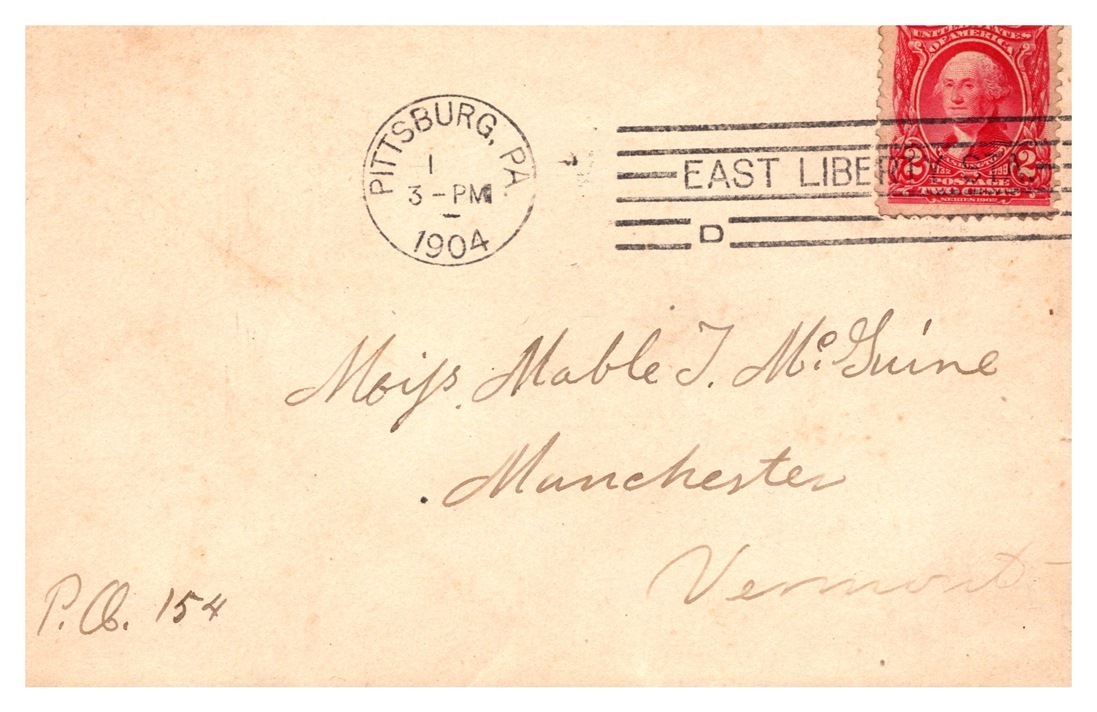 UNITED STATES
OF AMERICA
PITTSBURG, PA.
1
3-PM
1904
EAST LIBERTY STA.
D
WASHINGTON
2 POSTAGE 2
TWO CENTS
SERIES 1902
Miss Mable T. McGuine
Manchester
Vermont
P.O. 154